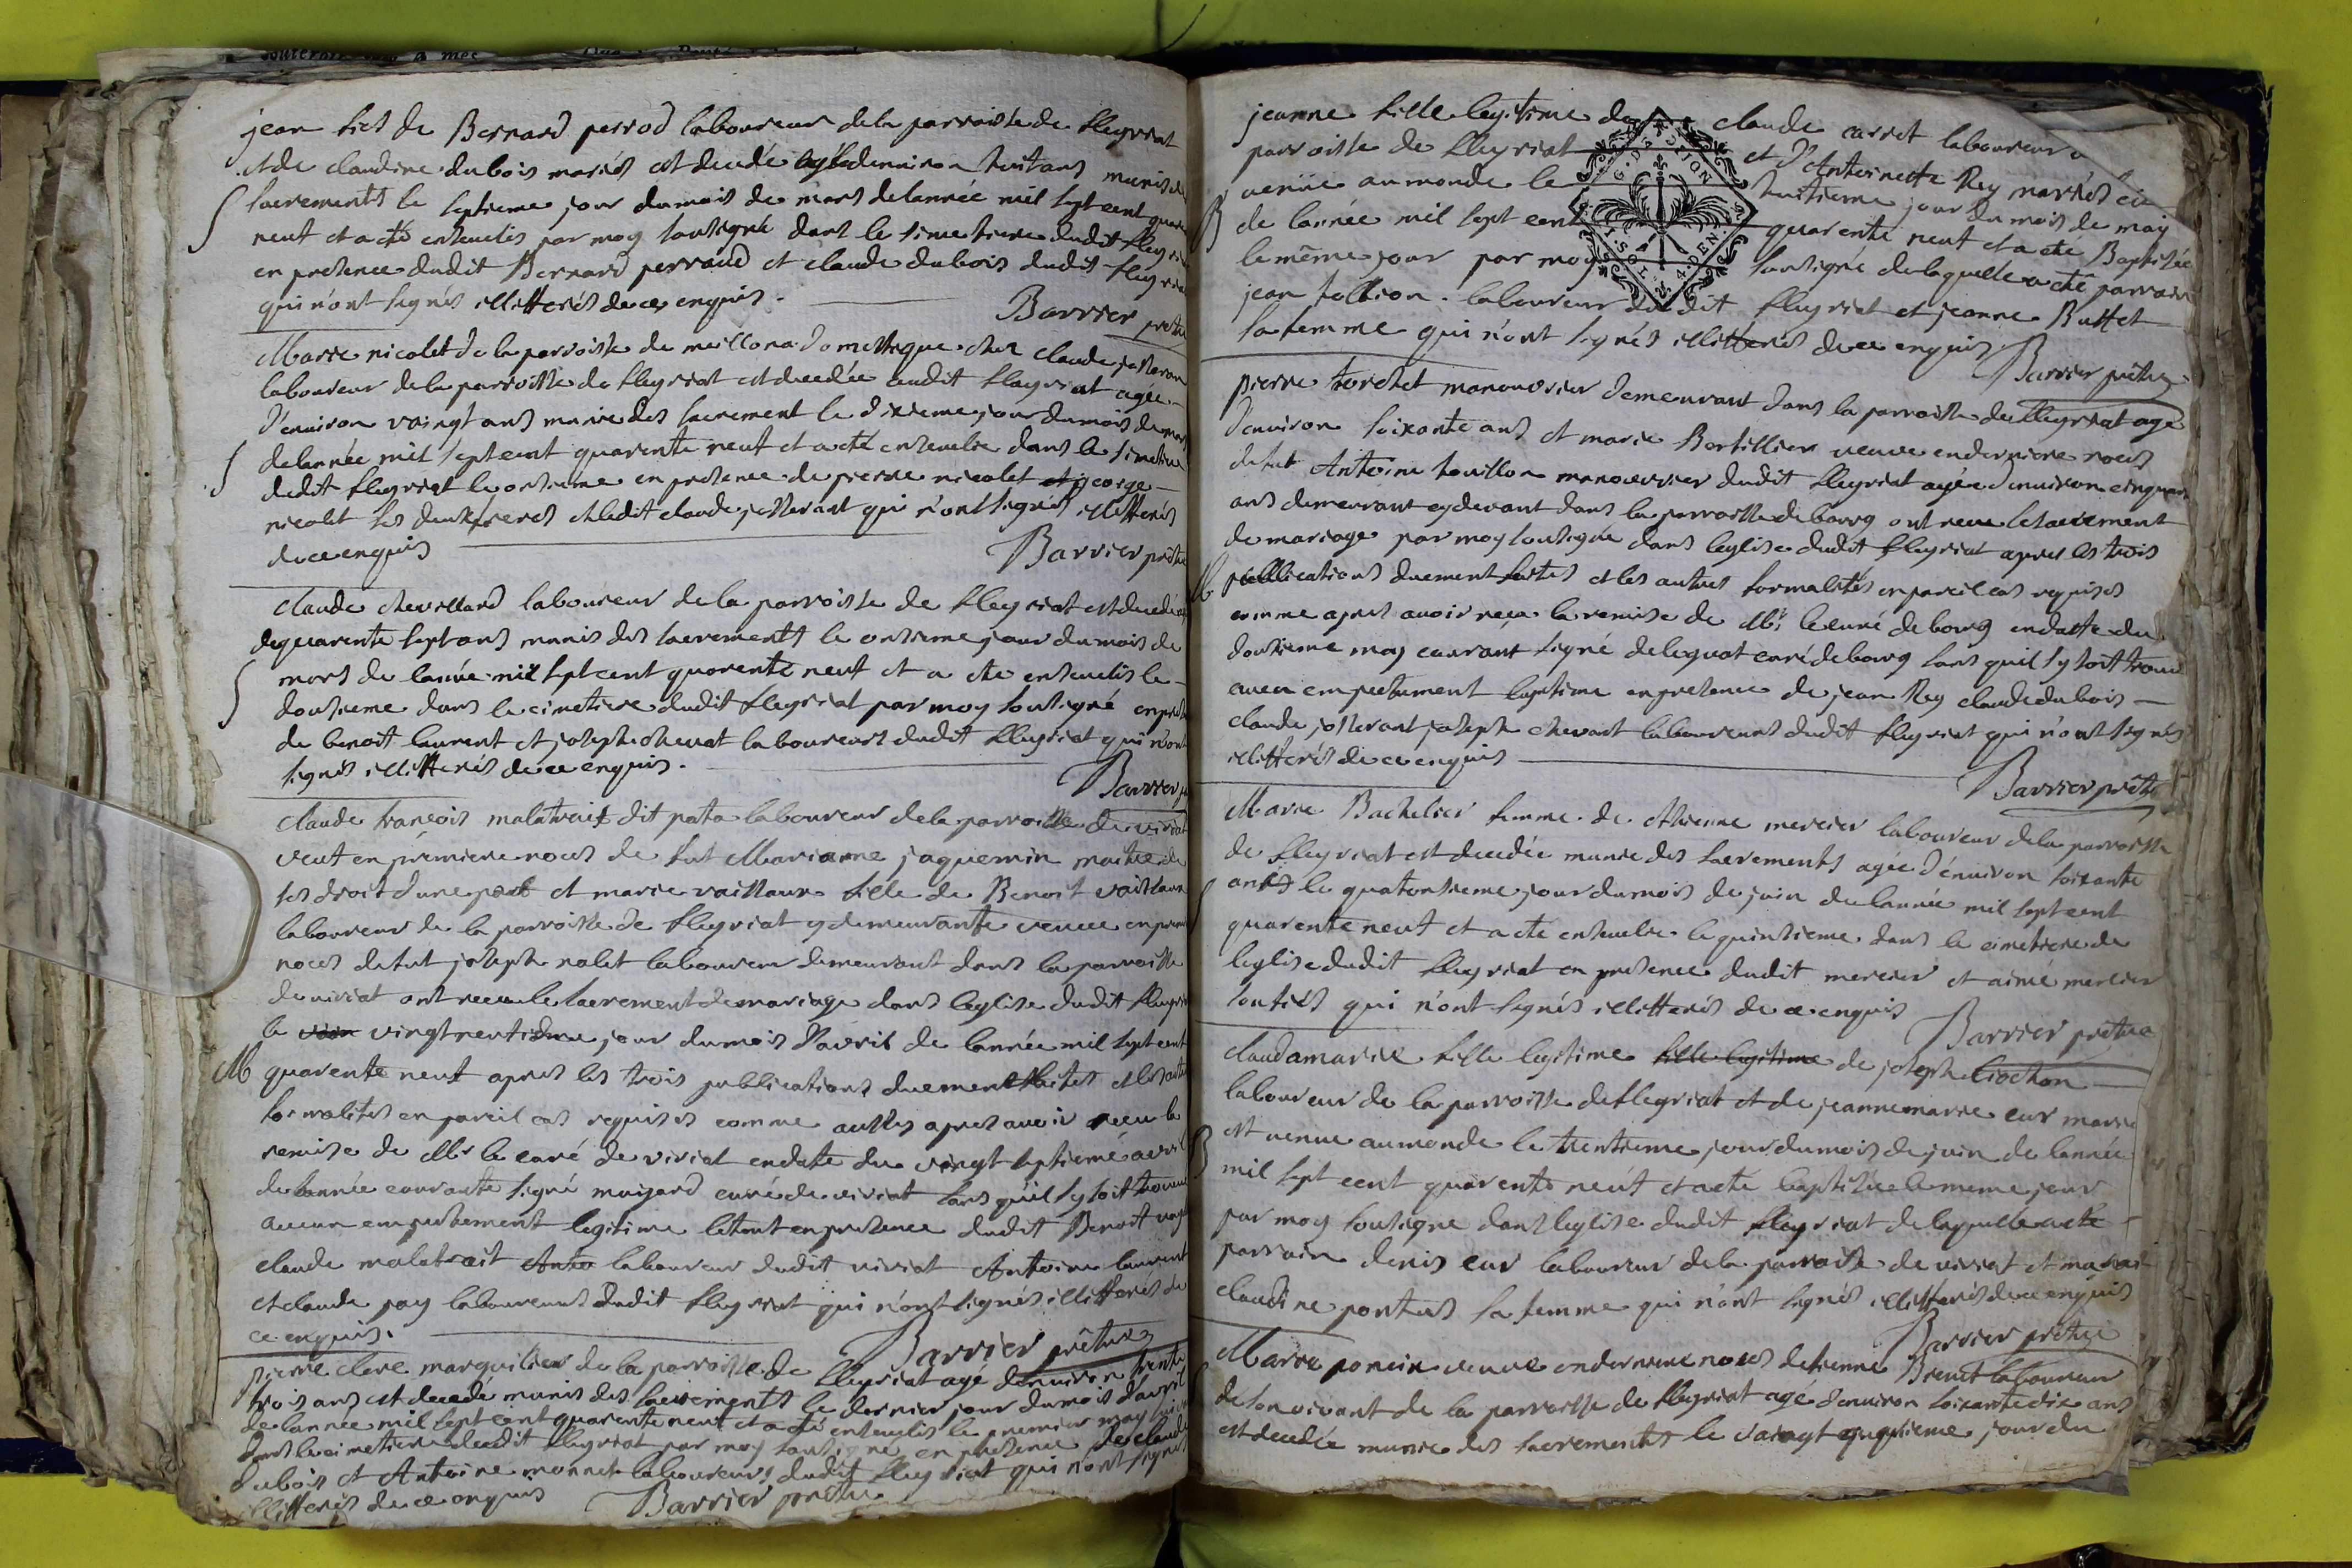 jean fils de Bernard perrod laboureur de la parroisse de fleyriat
et de claudine dubois mariés est decedé agé denviron huit ans munis des
S
sacrements le septieme jour du mois de mars de lannée mil sept cent quarente
neuf et a eté ensevelis par moy soussigné dans le simetiere dudit fleyriat
en presence dudit Bernard perraud et claude dubois dudit fleyriat
qui n'ont signés illitterés de ce enquis.
Barrier prêtre
Marie nicolet de la parroisse de meillona domestique chez claude josserant
laboureur de la parroisse de fleyriat est decedée audit fleyriat agée
d'environ vaingt ans munie des sacrement le dixieme jour du mois de mars
S
de lannée mil sept cent quarente neuf et a eté ensevelie dans le simetiere
dudit fleyriat le onsieme en presence de pierre nicolet et george
nicolet ses deux freres et ledit claude josserant qui n'ont signés illitterés
de ce enquis
Barrier prêtre
claude chevillard laboureur de la parroisse de fleyriat est decedé agé
de quarente sept ans munis des sacrements le onsieme jour du mois de
S
mars de lannée mil sept cent quarente neuf et a eté ensevelis le
dousieme dans le cimetiere dudit fleyriat par moy soussigné en presence
de benoit laurent et joseph chevat laboureurs dudit fleyriat qui n'ont
signés illitterés de ce enquis.
Barrier
claude françois malatrait dit pata laboureur de la parroisse de viriat
veuf en premiere noces de fut Marianne jaquemin maitre de
ses droit d'une part et marie vaillant fille de Benoit vaillant
laboureur de la parroisse de fleyriat y demeurante veuve en premiere
noces de fut joseph nalet laboureur demeurant dans la parroisse
de viriat ont receu le sacrement de mariage dans leglise dudit fleyriat
le vingt neufidme jour du mois d'avril de lannée mil sept cent
M
quarente neuf apres les trois publications duement faites et les autres
formalités en pareil cas requises comme aussy apres avoir receu la
remise de Mr le curé de viriat en date du vingt septieme avril
de lannée courante signé curé de viriat sans qu'il sy soit trouvé
aucun empechement legitime le tout en presence dudit Benoit
claude malatrait laboureur dudit viriat Antoine laurent
et claude pay laboureurs dudit fleyriat qui n'ont signés illitterés de
ce enquis.
Barrier prêtre
pierre clere marguilier de la parroisse de fleyriat agé denviron trente
trois ans est decedé munis des sacrements le dernier jour du mois d'avril
de lannée mil sept cent quarente neuf et a eté ensevelis le premier may
dans le cimetiere dudit fleyriat par moy soussigné en presence de claude
dubois et Antoine monnet laboureurs dudit fleyriat qui n'ont signés
illitterés de ce enquis
Barrier prêtre
jeanne fille legitime de claude carret laboureur
parroisse de fleyriat et d'Antoinette Rey mariés
G. D'A. DIJON
1. SOL. 4. DEN.
venüe au monde le huitieme jour du mois de may
B
de lannée mil sept cent quarente neuf et a eté Baptisée
le même jour par moy soussigné de laquelle a eté parrain
jean laboureur dudit fleyriat et jeanne Buffet
sa femme qui n'ont signés illitterés de ce enquis
Barrier prêtre
pierre torchet manouvrier demeurant dans la parroisse de fleyriat agé
d'environ soixante ans et marie Bortillier veuve en derniere noces
de fut Antoine touillon manouvrier dudit fleyriat agée denviron cinquante
ans demeurant cy devant dans la parroisse de bourg ont receu le sacrement
de mariage par moy soussigné dans leglise dudit fleyriat apres les trois
M
publications duement faites et les autres formalités en pareil cas requises
comme apres avoir receu la remise de Mr le curé de bourg en datte du
dousieme may courant signé curé de bourg sans quil sy soit trouvé
aucun empechement legitime en presence de jean Rey claude dubois
claude josserant joseph chevat laboureurs dudit fleyriat qui n'ont signés
illitterés de ce enquis
Barrier prêtre
Marie Bachelier femme de ethienne mercier laboureur de la parroisse
de fleyriat est decedée munie des sacrements agée d'environ soixante
ans le quatorsieme jour du mois de juin de lannée mil sept cent
S
quarente neuf et a eté ensevelie le quinsieme dans le cimetiere de
leglise dudit fleyriat en presence dudit mercier et aimé mercier
qui n'ont signés illitterés de ce enquis
Barrier prêtre
claudamarie fille legitime fille legitime de joseph liochon
laboureur de la parroisse de fleyriat et de jeannemarie cur mariés
B
est venue au monde le trentieme jour du mois de juin de lannée
mil sept cent quarente neuf et a eté baptisée le meme jour
par moy soussigné dans leglise dudit fleyriat de laquelle a eté
parrain denis cur laboureur de la parroisse de viriat et
claudine pontus sa femme qui n'ont signés illitterés de ce enquis
Barrier prêtre
Marie poncin veuve en derniere noces detienne Brevet laboureur
S
de son vivant de la parroisse de fleyriat agé denviron soixante dix ans
est decedée munie des sacrements le vaingt jour du